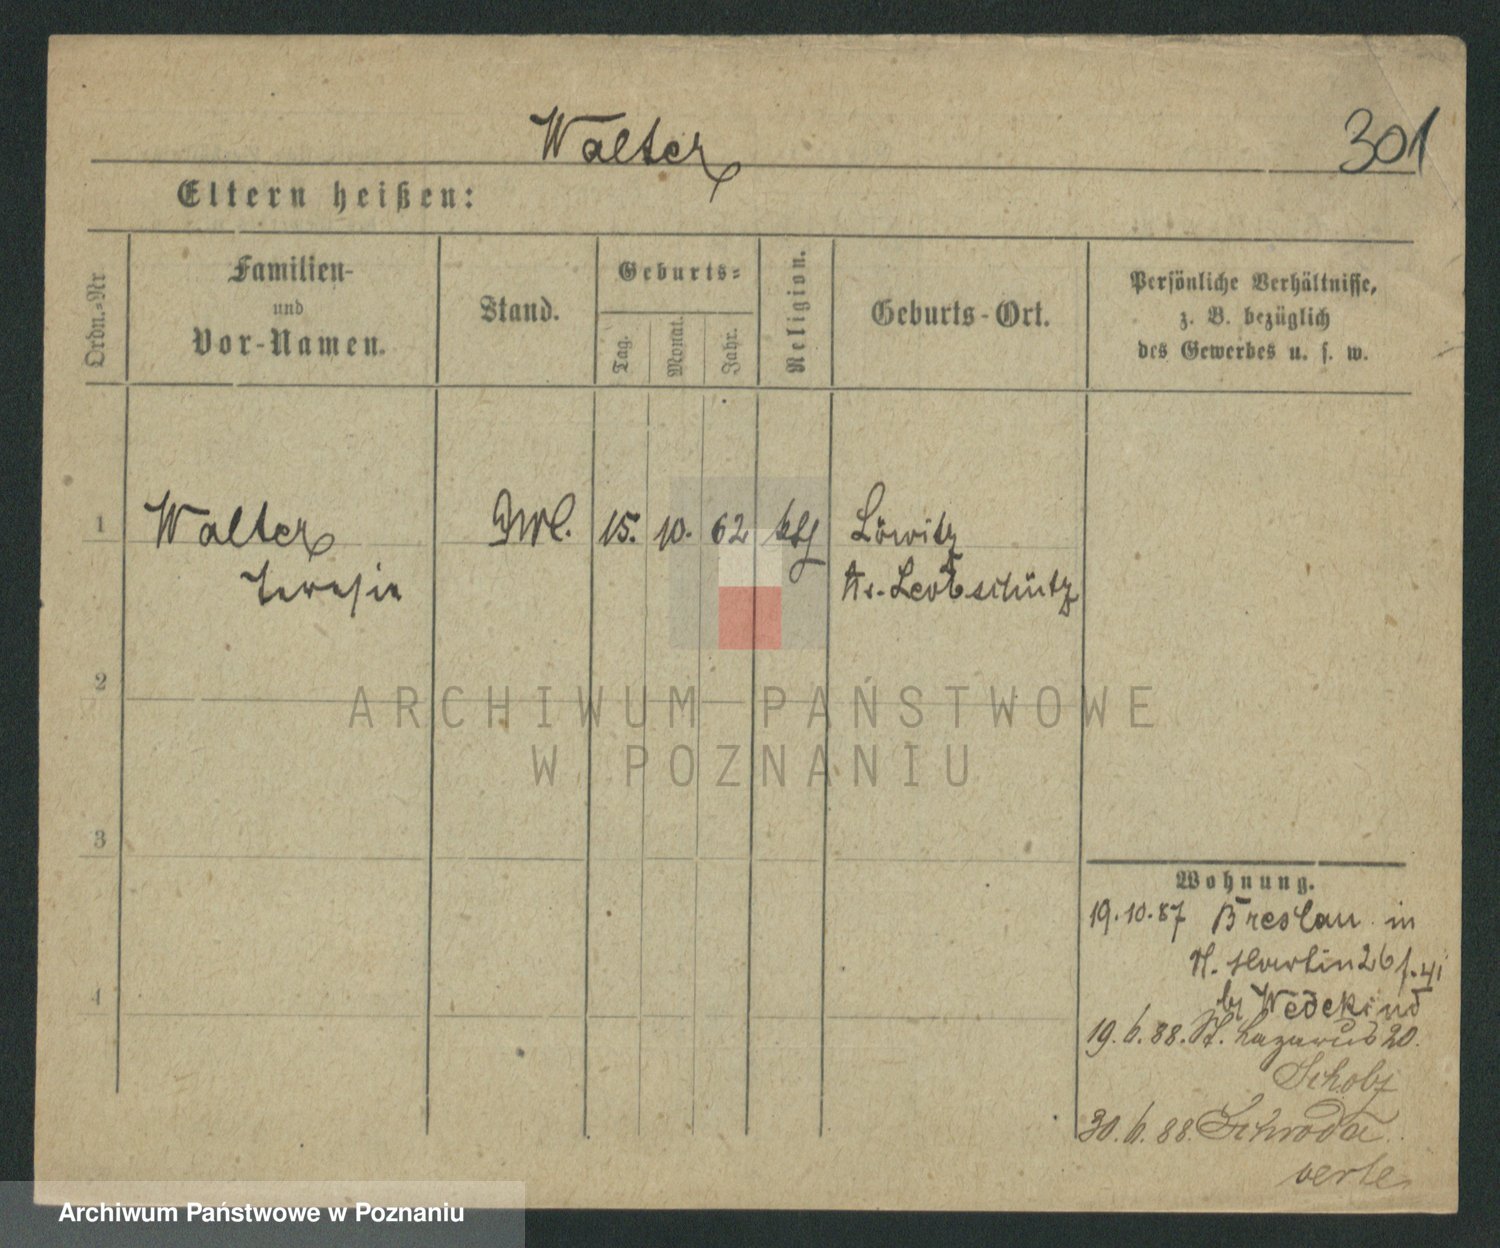 Walter
301
Eltern heißen:
Ordn.-Nr
Familien-
und
Vor-Namen.
Stand.
Geburts-
Tag.
Monat.
Jahr.
Religion.
Geburts-Ort.
Persönliche Verhältnisse,
z. B. bezüglich
des Gewerbes u. s. w.
1
Walter
15. 10. 62
Löwitz
Teresia
Kr. Leobschütz
2
ARCHIWUM PAŃSTWOWE
W POZNANIU
3
Wohnung.
19.10.87 Breslau in
St. Martin 26
b/ Wedekind
4
19.6.88. St. Lazarus 20.
30.6.88. Schroda
verte
Archiwum Państwowe w Poznaniu